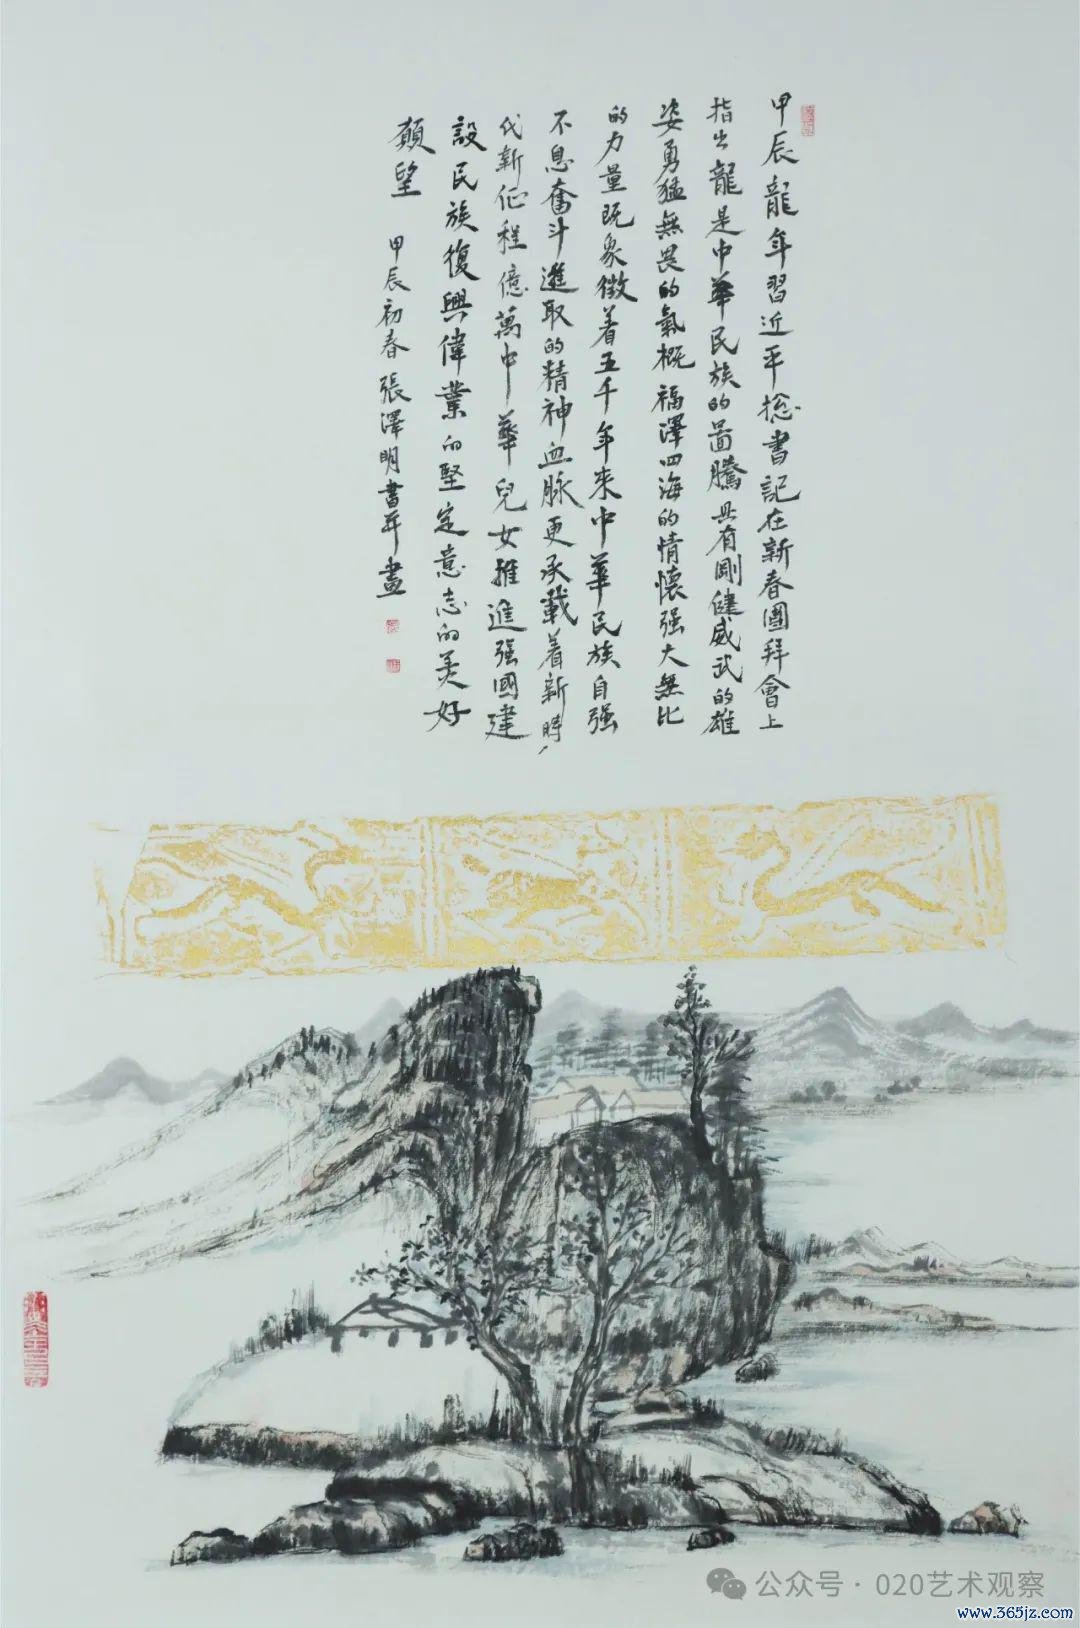 甲辰龍年習近平総書記在新春團拜會上
指出龍是中華民族的圖騰具有剛健威武的雄
姿勇猛無畏的氣概福澤四海的情懷强大無比
的力量既象徵着五千年來中華民族自强
不息奮斗進取的精神血脉更承載着新時
代新征程億萬中華兒女推進强國建
設民族復興偉業的堅定意志的美好
願望
甲辰初春張澤明書并畫
公众号·020艺术观察
www.365jz.com